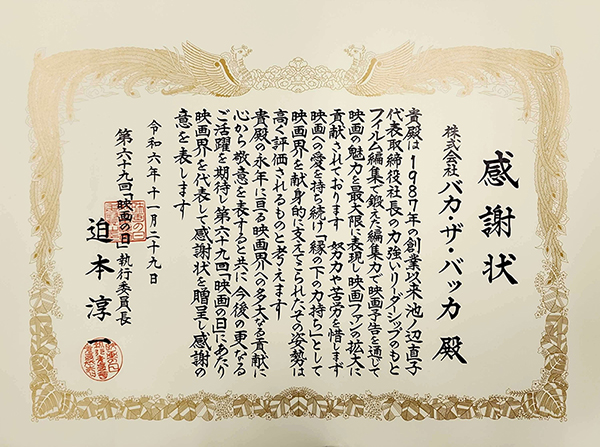 感謝状
株式会社 バカ・ザ・バッカ 殿
貴殿は1987年の創業以来池ノ辺直子
代表取締役社長の力強いリーダーシップのもと
フィルム編集で鍛えた編集力で映画予告を通じて
映画の魅力を最大限に表現し映画ファンの拡大に
貢献されております 努力や苦労を惜しまず
映画への愛を持ち続け「縁の下の力持ち」として
映画界を献身的に支えてこられたその姿勢は
高く評価されるものと考えます
貴殿の永年に亘る映画界への多大なる貢献に
心から敬意を表すると共に今後の更なる
ご活躍を期待し第六十九回「映画の日」にあたり
映画界を代表して感謝状を贈呈し感謝の
意を表します
令和六年十一月二十九日
第六十九回「映画の日」執行委員長
迫本淳一